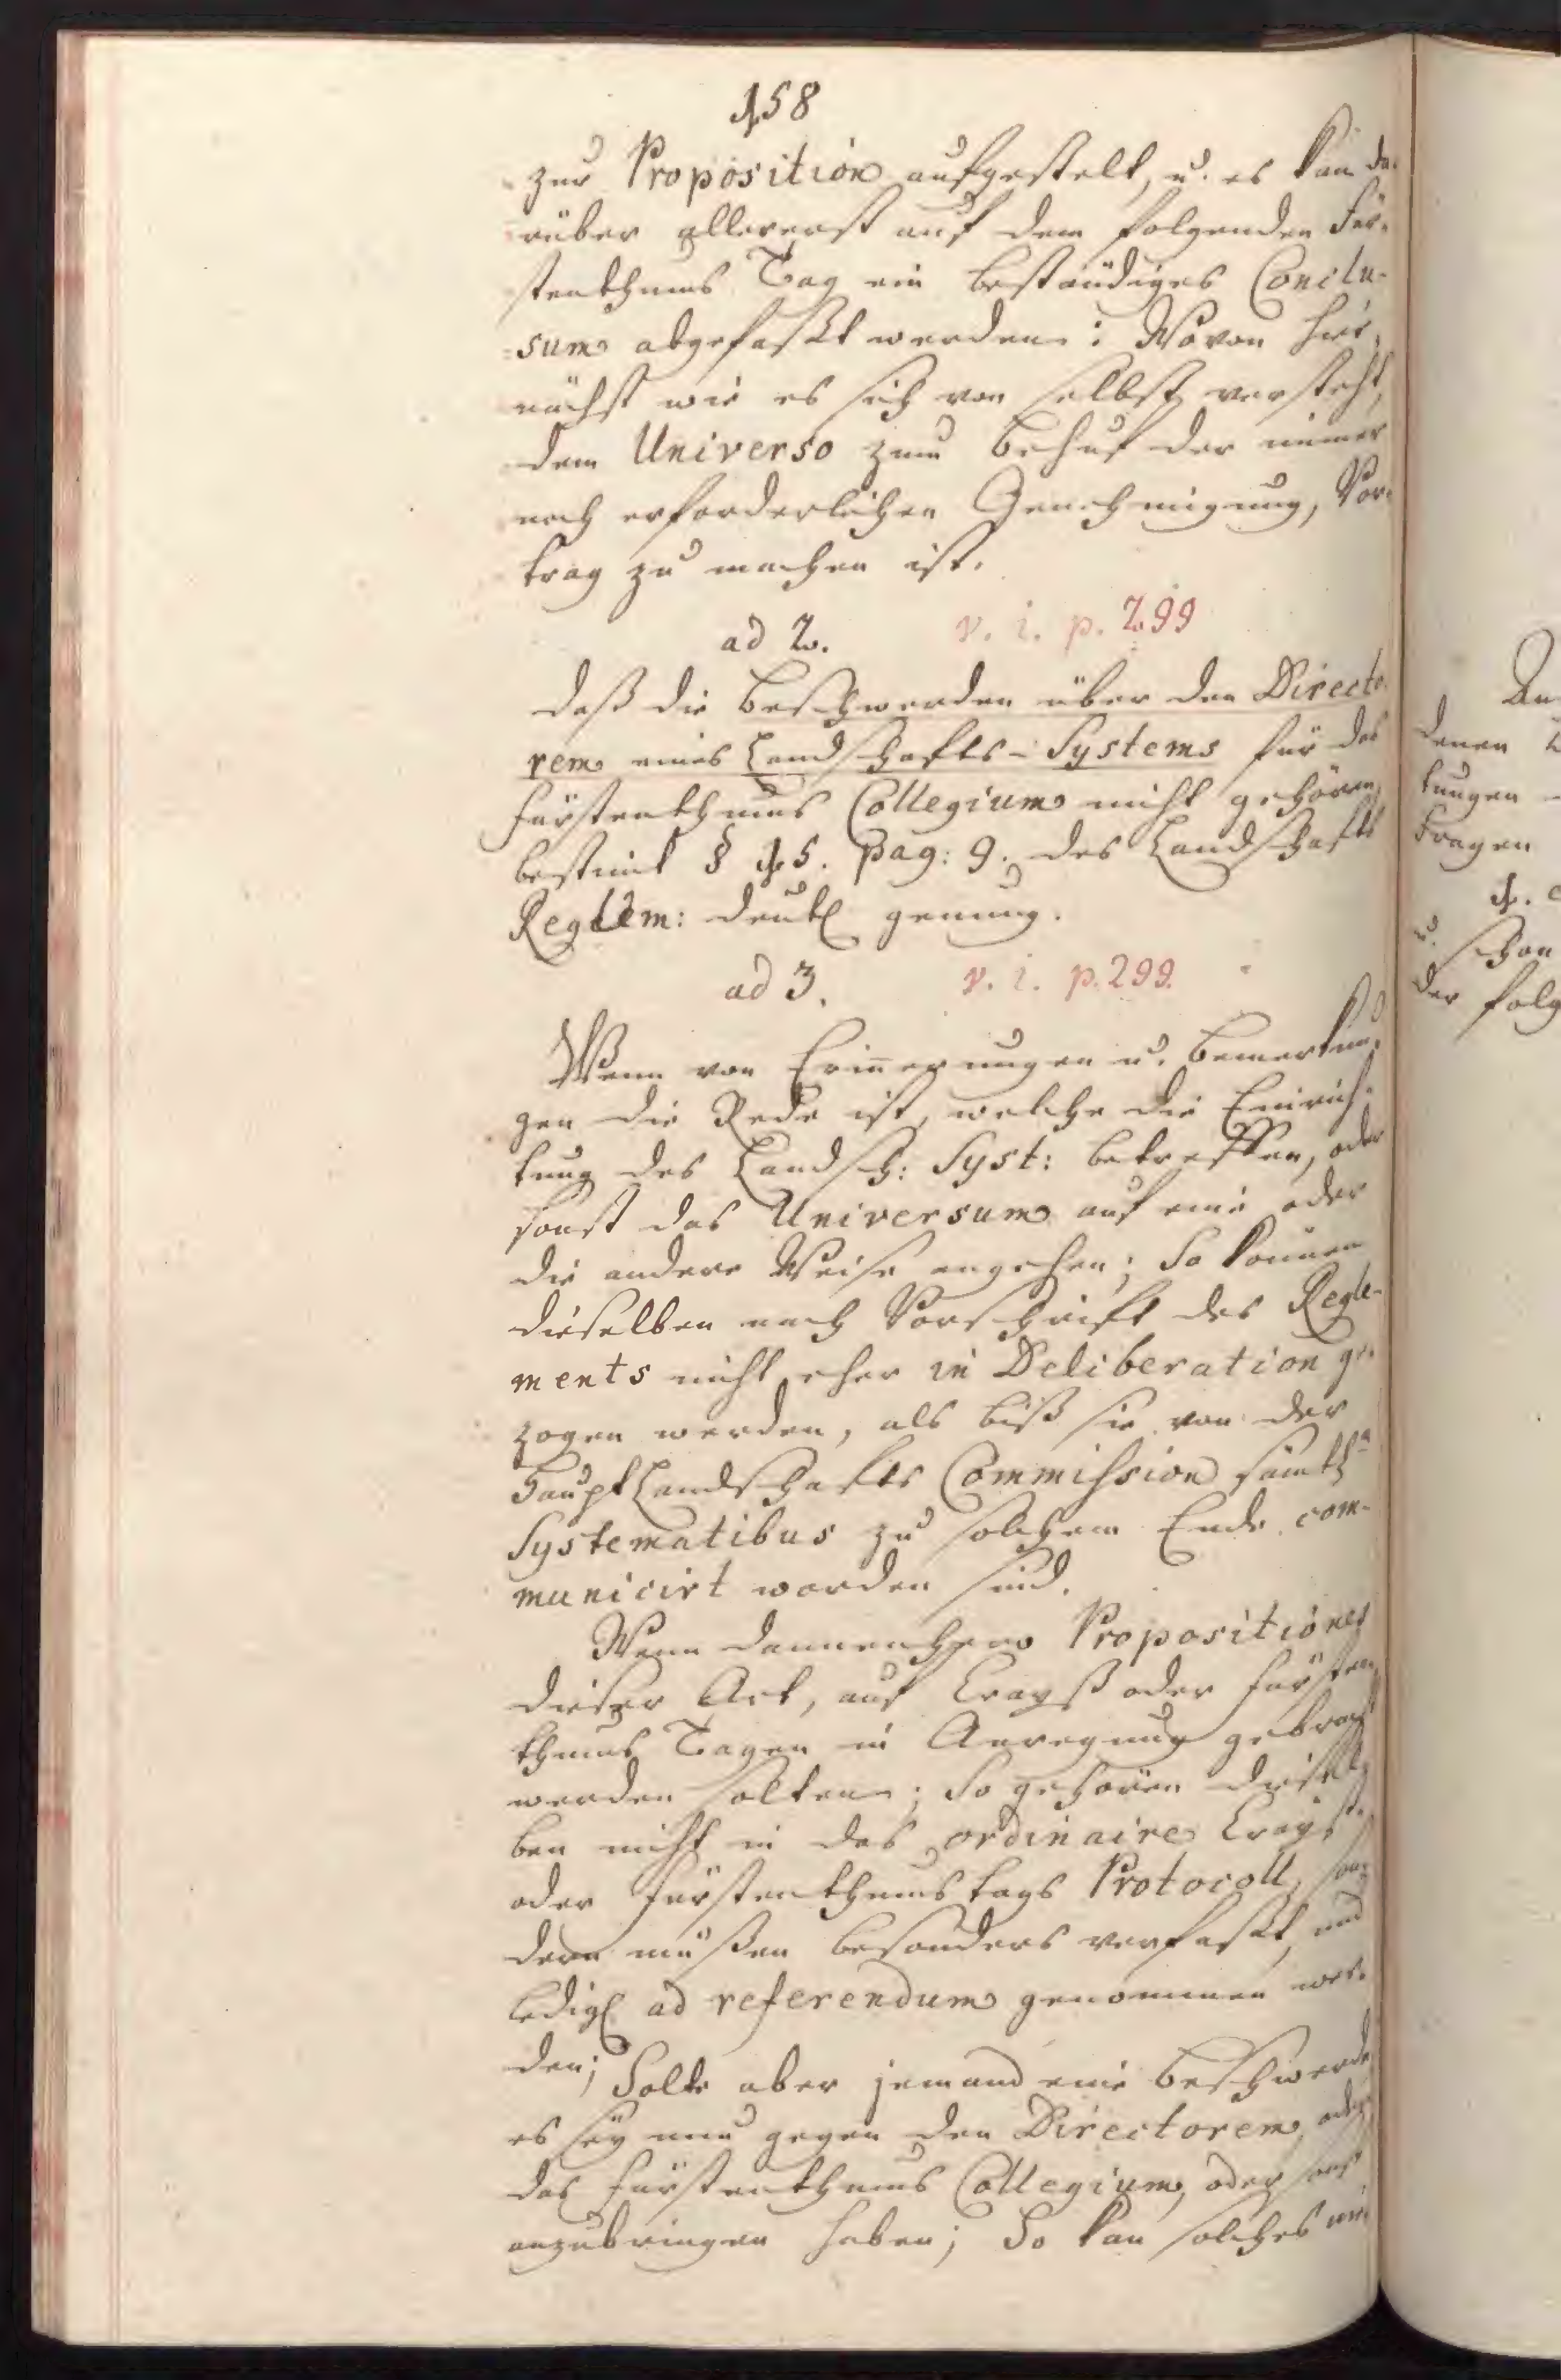 158
zur Proposition aufgestelt, u. es kan da-
rüber allererst auf dem folgenden Für-
stenthums Tag ein beständiges Conclu-
sum abgefaßt werden: Wovon hier-
nächst wie es sich von selbst versteht,
dem Universo zum Behuf der immer
noch erforderlichen Genehmigung, Vor-
trag zu machen ist.
ad 2. v. i. p. 299
Daß die Beschwerden über den Directo-
rem eines Landschafts-Systems für das
Fürstenthums Collegium nicht gehören,
bestimt § 15. pag: 9. des Landschafts
Reglem: deutl genung.
ad 3. v. i. p. 299.
Wenn von Erinnerungen u. Bemerkun-
gen die Rede ist, welche die Einrich-
tung des Landsch: Syst: betreffen, oder
sonst das Universum auf eine oder
die andere Weise angehen; So können
dieselben nach Vorschrift des Regle-
ments nicht eher in Deliberation ge-
zogen werden, als biß sie von der
Haupt Landschafts Commission sämtl
Systematibus zu solchem Ende com-
municirt worden sind.
Wenn dannenhero Propositiones
dieser Art, auf Creyß oder Fürsten-
thums Tagen in Anregung gebracht
werden solten; So gehören diesel-
ben nicht in das ordinaire Creyß-
oder Fürstenthumstags Protocoll, son-
dern müßen besonders verfaßt, und
ledigl ad referendum genommen wer-
den; Solte aber jemand eine Beschwerde
es sey nun gegen den Directorem, oder
das Fürstenthums Collegium, oder sonst
anzubringen haben; So kan solches
denen
tungen
tragen
1.
u. schon
der folg